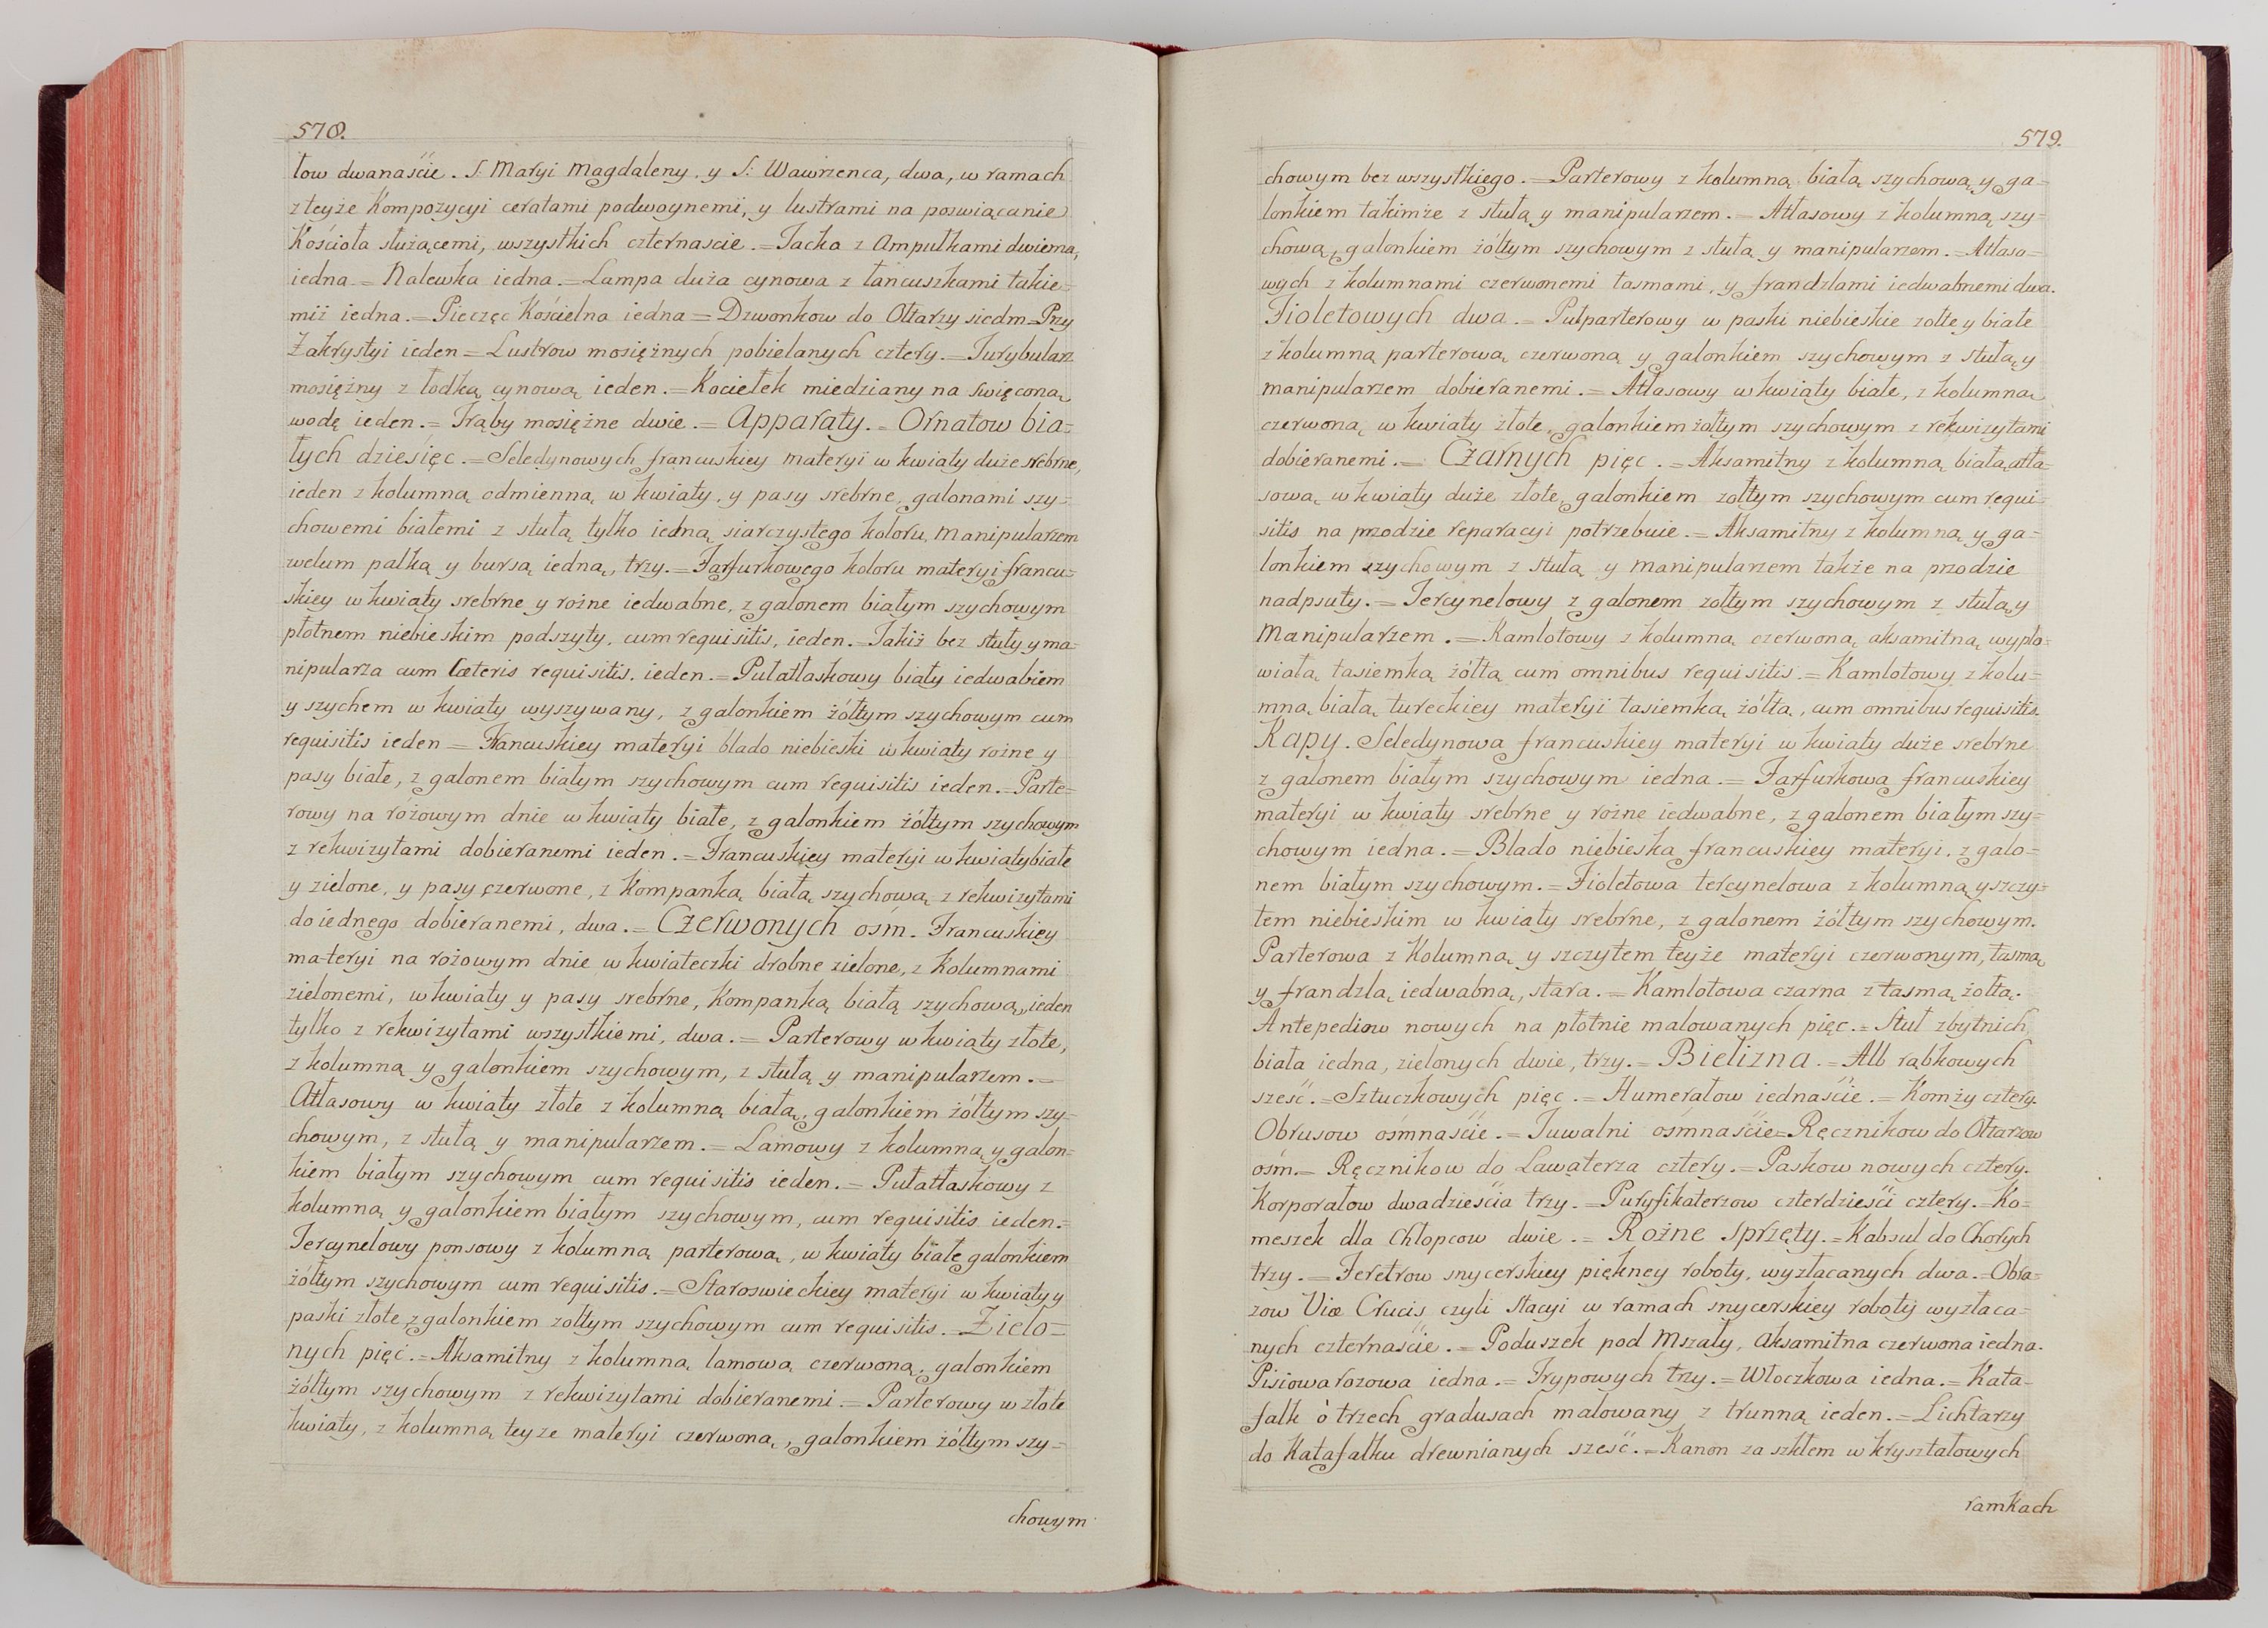 578.
łow dwanaście. S: Maryi Magdaleny, y S: Wawrzenca, dwa, w ramach
z teyże Kompozycyi ceratami podwoynemi, y lustrami na poswiącanie
Kościoła służącemi, wszystkich czternascie. = Tacka z Ampułkami dwiema,
iedna = Nalewka iedna. = Lampa duża cynowa z łancuszkami takie=
miż iedna. = Pieczęc Kościelna iedna = Dzwonkow do Ołtarzy siedm = Przy
Zakrystyi ieden = Lustrow mosiężnych pobielanych cztery. = Turybularz
mosiężny z łodką cynową ieden. = Kociełek miedziany na święconą
wodę ieden. = Trąby mosiężne dwie. = Apparaty. = Ornatow bia=
łych dziesięc. = Seledynowych francuskiey materyi w kwiaty duże srebrne,
ieden z kolumną odmienną w kwiaty, y pasy srebrne, galonami szy=
chowemi białemi z stułą tylko iedną siarczystego koloru, manipularzem
welum palką y bursą iedną, trzy. = Farfurkowego koloru materyi francu=
skiey w kwiaty srebrne y rożne iedwabne, z galonem białym szychowym
płotnem niebieskim podszyty, cum requisitis, ieden. = Takiż bez stuły y ma=
nipularza cum Cæteris requisitis, ieden. = Pułatłaskowy biały iedwabiem
y szychem w kwiaty wyszywany, z galonkiem żółtym szychowym cum
requisitis ieden = Francuskiey materyi blado niebieski w kwiaty rożne y
pasy białe, z galonem białym szychowym cum requisitis ieden. = Parte=
rowy na różowym dnie w kwiaty białe, z galonkiem żółtym szychowym
z rekwizytami dobieranemi ieden. = Francuskiey materyi w kwiaty białe
y zielone, y pasy czerwone, z Kompanką białą szychową z rekwizytami
do iednego dobieranemi, dwa. = Czerwonych ośm. Francuskiey
materyi na rożowym dnie w kwiateczki drobne zielone, z Kolumnami
zielonemi, w kwiaty y pasy srebrne, Kompanką białą szychową, ieden
tylko z rekwizytami wszystkiemi, dwa. = Parterowy w kwiaty złote,
z kolumną y galonkiem szychowym, z stułą y manipularzem. =
Atłasowy w kwiaty złote z kolumną białą, galonkiem żółtym szy=
chowym, z stułą y manipularzem. = Lamowy z kolumną y galon=
kiem białym szychowym cum requisitis ieden. = Pułatłaskowy z
kolumną y galonkiem białym szychowym, cum requisitis ieden. =
Tercynelowy ponsowy z kolumną parterową, w kwiaty białe galonkiem
żółtym szychowym cum requisitis. = Staroswieckiey materyi w kwiaty y
paski złote, z galonkiem zołtym szychowym cum requisitis. = Zielo=
nych pięć. = Aksamitny z kolumną lamową czerwoną, galonkiem
żółtym szychowym z rekwizytami dobieranemi. = Parterowy w złote
kwiaty, z kolumną teyze materyi czerwoną, galonkiem żółtym szy=
chowym
579.
chowym bez wszystkiego. = Parterowy z kolumną białą szychową y ga=
lonkiem takimże z stułą y manipularzem. = Atłasowy z kolumną szy=
chową, galonkiem żółtym szychowym z stułą y manipularzem. = Atłaso=
wych z kolumnami czerwonemi tasmami, y frandzlami iedwabnemi dwa.
Fioletowych dwa. = Pułparterowy w paski niebieskie zołte y białe
z kolumną parterową czerwoną y galonkiem szychowym z stułą y
manipularzem dobieranemi. = Atłasowy w kwiaty białe, z kolumną
czerwoną w kwiaty złote, galonkiem żołtym szychowym z rekwizytami
dobieranemi. = Czarnych pięc. = Aksamitny z kolumną białą atła=
sową w kwiaty duże złote, galonkiem zołtym szychowym cum requi=
sitis na przodzie reparacyi potrzebuie. = Aksamitny z kolumną y ga=
lonkiem szychowym z stułą y manipularzem także na przodzie
nadpsuty. = Tercynelowy z galonem zołtym szychowym z stułą y
Manipularzem. = Kamlotowy z kolumną czerwoną aksamitną wypło=
wiałą tasiemką żółtą cum omnibus requisitis. = Kamlotowy z kolu=
mną białą tureckiey materyi tasiemką żółtą, cum omnibus requisitis.
Kapy. Seledynowa francuskiey materyi w kwiaty duże srebrne
z galonem białym szychowym iedna. = Farfurkowa francuskiey
materyi w kwiaty srebrne y rożne iedwabne, z galonem białym szy=
chowym iedna. = Blado niebieska francuskiey materyi, z galo=
nem białym szychowym. = Fioletowa tercynelowa z kolumną y szczy=
tem niebieskim w kwiaty srebrne, z galonem żółtym szychowym.
Parterowa z Kolumną y szczytem teyże materyi czerwonym, tasmą
y frandzlą iedwabną, stara. = Kamlotowa czarna z tasmą żołtą.
Antepediow nowych na płotnie malowanych pięc. = Stuł zbytnich,
biała iedna, zielonych dwie, trzy. = Bielizna. = Alb rąbkowych
sześć. = Sztuczkowych pięc. = Humerałow iednaście. = Komży cztery.
Obrusow ośmnaście. = Tuwalni ośmnaście = Ręcznikow do Ołtarzow
ośm. = Ręcznikow do Lawaterza cztery. = Paskow nowych cztery.
Korporałow dwadzieścia trzy. = Puryfikaterzow czterdzieści cztery. = Ko=
meszek dla Chłopcow dwie. = Rożne Sprzęty. = Kabsul do Chorych
trzy. = Feretrow snycerskiey piękney roboty, wyzłacanych dwa. = Obra=
zow Viæ Crucis, czyli stacyi w ramach snycerskiey roboty wyzłaca=
nych czternaście. = Poduszek pod Mszały, Aksamitna czerwona iedna.
Pisiowa rozowa iedna. = Trypowych trzy. = Włoczkowa iedna. = Kata=
falk ó trzech gradusach malowany z trunną ieden. = Lichtarzy
do Katafalku drewnianych sześć. = Kanon za szkłem w kryształowych
ramkach